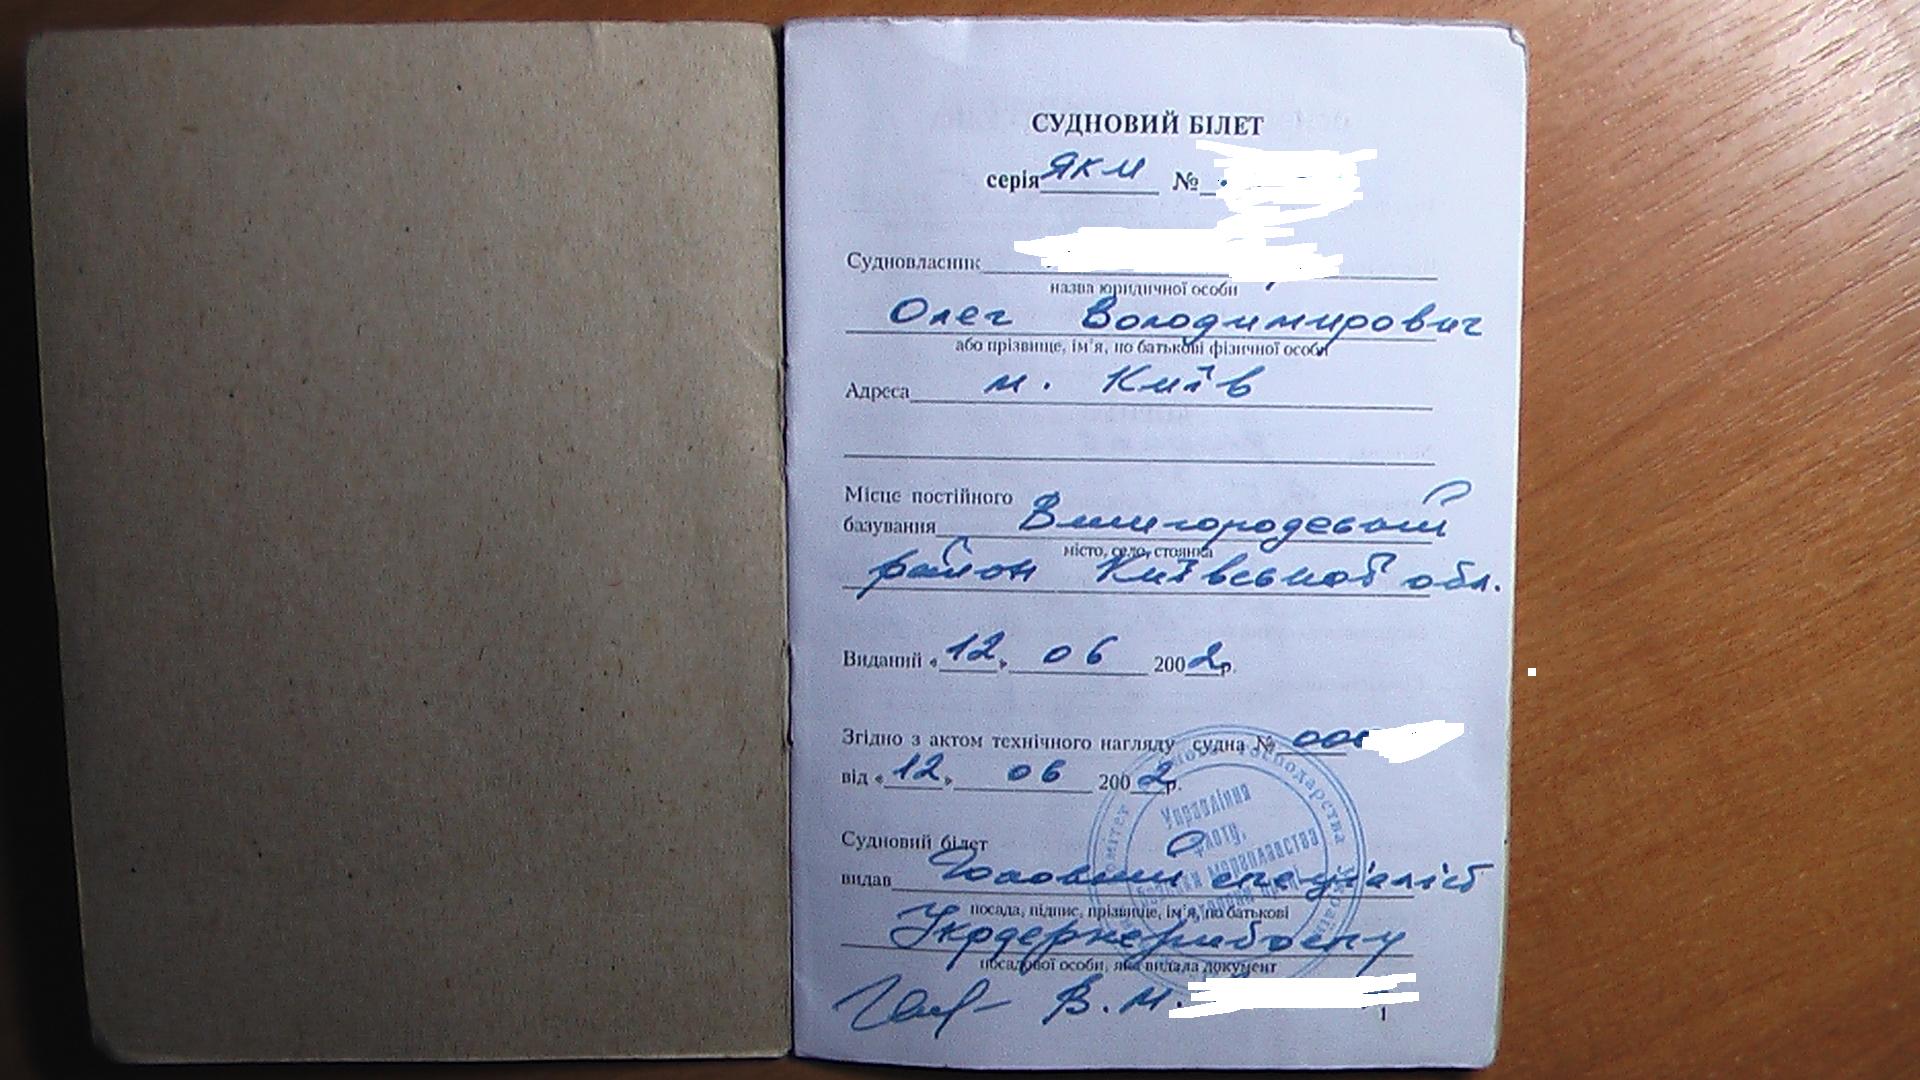 СУДНОВИЙ БІЛЕТ
серія ЯКМ №
Судновласник
назва юридичної особи
Олег Володимирович
або прізвище, ім'я, по батькові фізичної особи
Адреса м. Київ
Місце постійного
базування Вишгородський
місто, село, стоянка
район Київської обл.
Виданий «12» 06 2002р.
Згідно з актом технічного нагляду судна № 00
від «12» 06 2002р.
Судновий білет
видав Головний спеціаліст
посада, підпис, прізвище, ім'я, по батькові
Укрдержрибоспу
посадової особи, яка видала документ
В. М.
1
Управління
флоту,